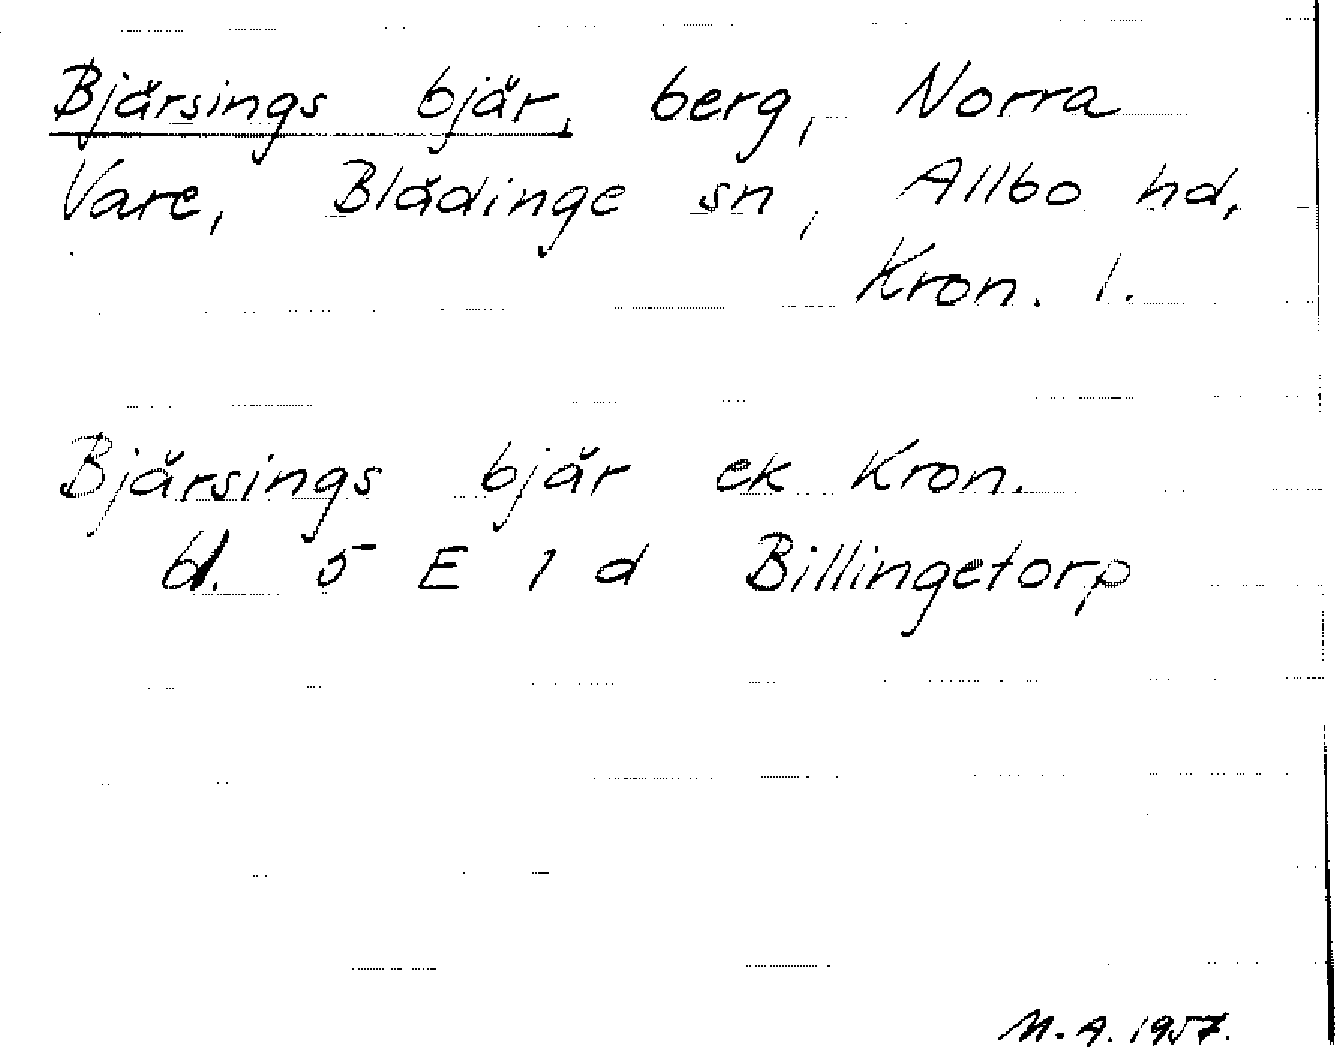 Bjärsings bjär, berg, Norra
Vare, Blädinge sn, Allbo hd,
Kron. l.
Bjärsings bjär ek Kron.
bl. 5 E 1 d Billingetorp
M.A. 1957.